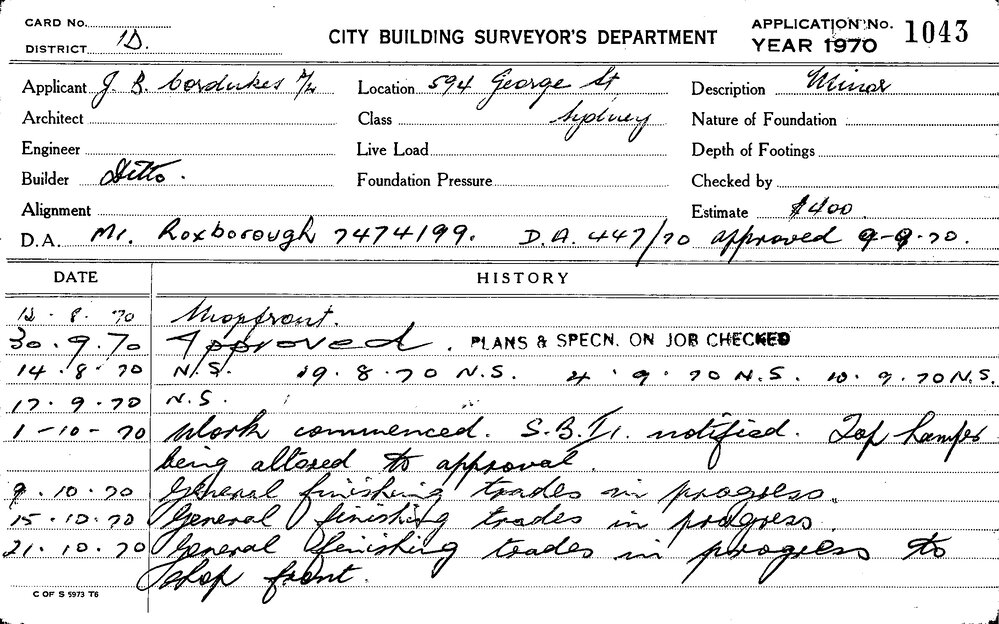 CARD No.
DISTRICT 1D.
CITY BUILDING SURVEYOR'S DEPARTMENT
APPLICATION No. 1043
YEAR 1970
Applicant J. B. Cordukes P/L
Location 594 George St
Description Minor
Architect
Class Sydney
Nature of Foundation
Engineer
Live Load
Depth of Footings
Builder Ditto.
Foundation Pressure
Checked by
Alignment
Estimate $400
D.A. Mr. Roxborough 7474199. D.A. 447/70 approved 9-9-70.
DATE HISTORY
12.8.70 Shopfront.
30.9.70 Approved. PLANS & SPECN. ON JOB CHECKED
14.8.70 N.S. 19.8.70 N.S. 4.9.70 N.S. 10.9.70 N.S.
17.9.70 N.S.
1-10-70 Work commenced. S.B.I. notified. Top hamper
being altered to approval.
9.10.70 General finishing trades in progress.
15.10.70 General finishing trades in progress.
21.10.70 General finishing trades in progress to
shop front.
C OF S 5973 T6